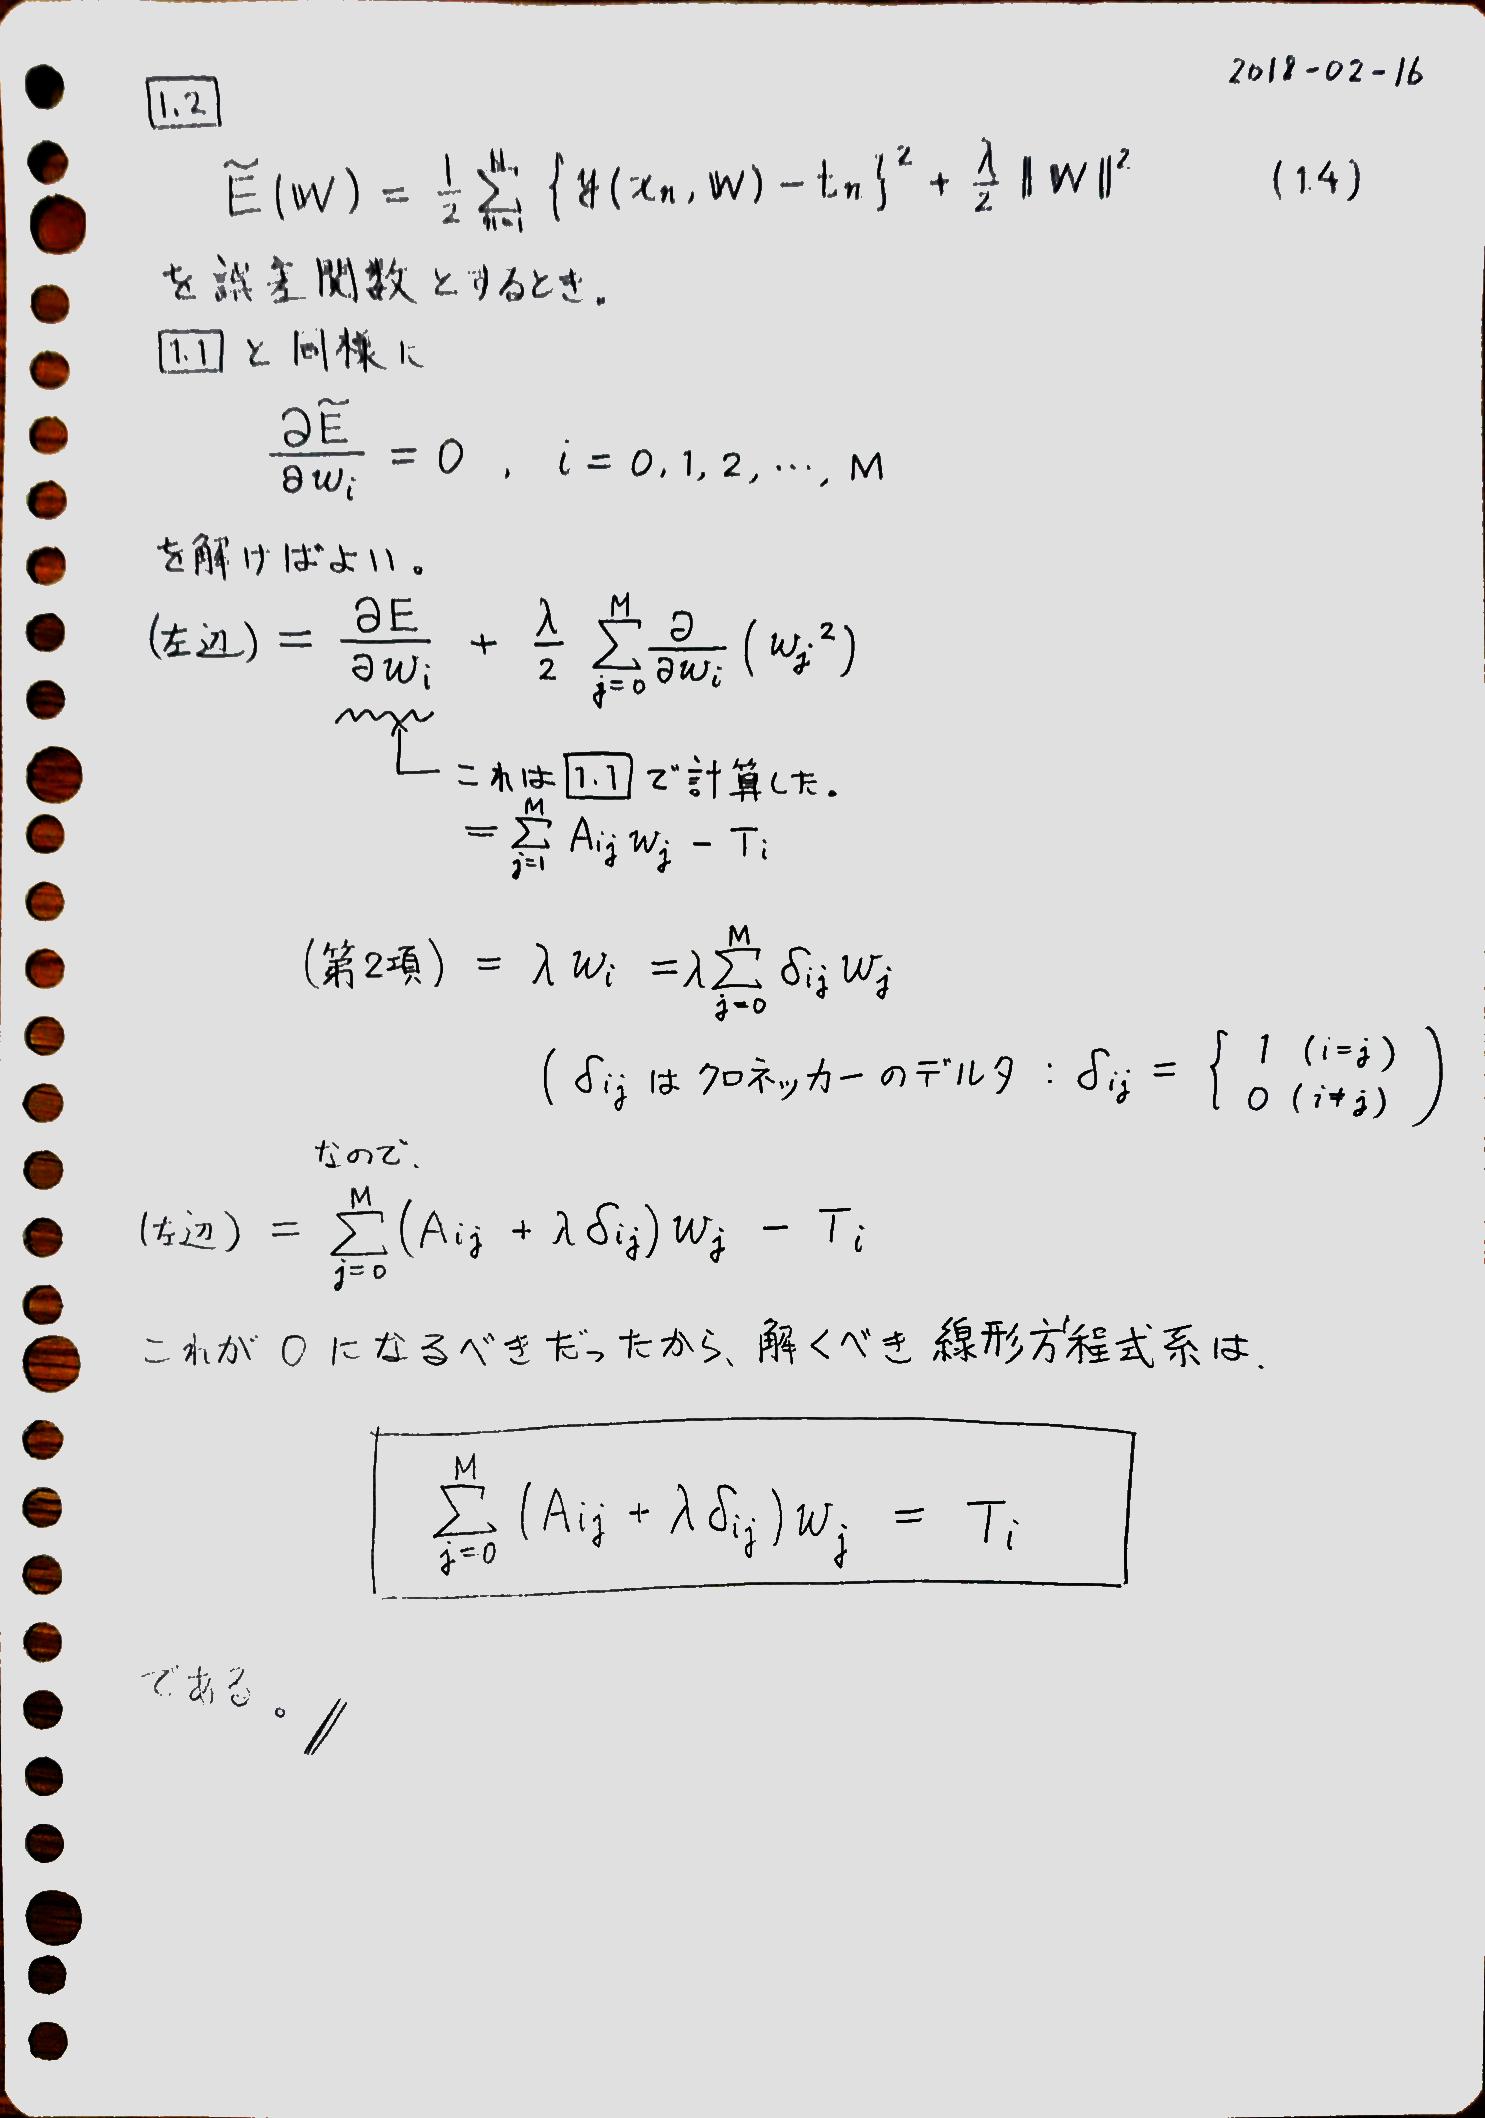 2018-02-16
1.2
Ẽ(W) = 1/2 Σ_{n=1}^{N} {y(x_n, W) - t_n}² + λ/2 ‖W‖² (1.4)
を誤差関数とするとき,
1.1 と同様に
∂Ẽ/∂w_i = 0 , i = 0, 1, 2, …, M
を解けばよい。
(左辺) = ∂E/∂w_i + λ/2 Σ_{j=0}^{M} ∂/∂w_i (w_j²)
これは 1.1 で計算した。
= Σ_{j=1}^{M} A_{ij} w_j - T_i
(第2項) = λ w_i = λ Σ_{j=0}^{M} δ_{ij} w_j
( δ_{ij} は クロネッカーのデルタ : δ_{ij} = { 1 (i=j) 0 (i≠j) )
なので、
(左辺) = Σ_{j=0}^{M} (A_{ij} + λ δ_{ij}) w_j - T_i
これが 0 になるべきだったから、解くべき 線形方程式系は、
Σ_{j=0}^{M} (A_{ij} + λ δ_{ij}) w_j = T_i
である。//